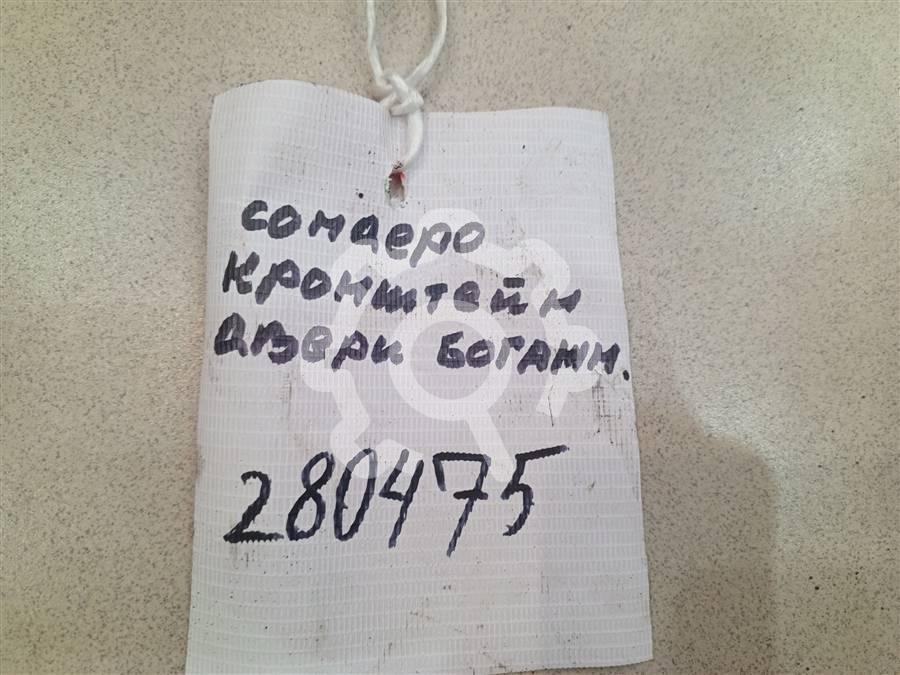 сондеро
кронштейн
двери богажн.
280475